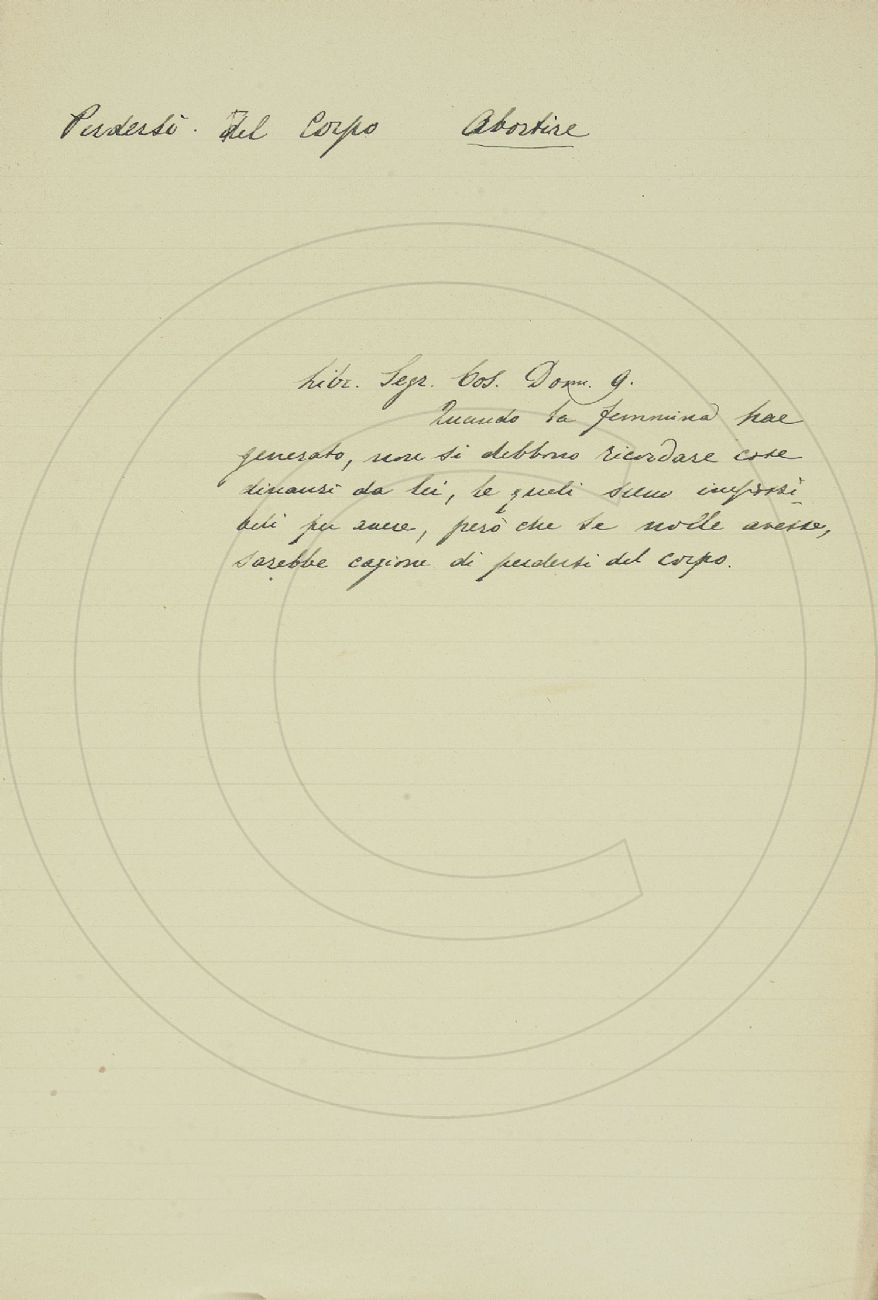 Perdersi. Del Corpo Abortire
Libr. Segr. Cos. Donn. 9.
Quando la femmina hae
generato, non si debbono ricordare cose
dinanzi da lei, le quali sieno impossi-
bili per avere, però che se nolle avesse,
sarebbe cagione di perdersi del corpo.